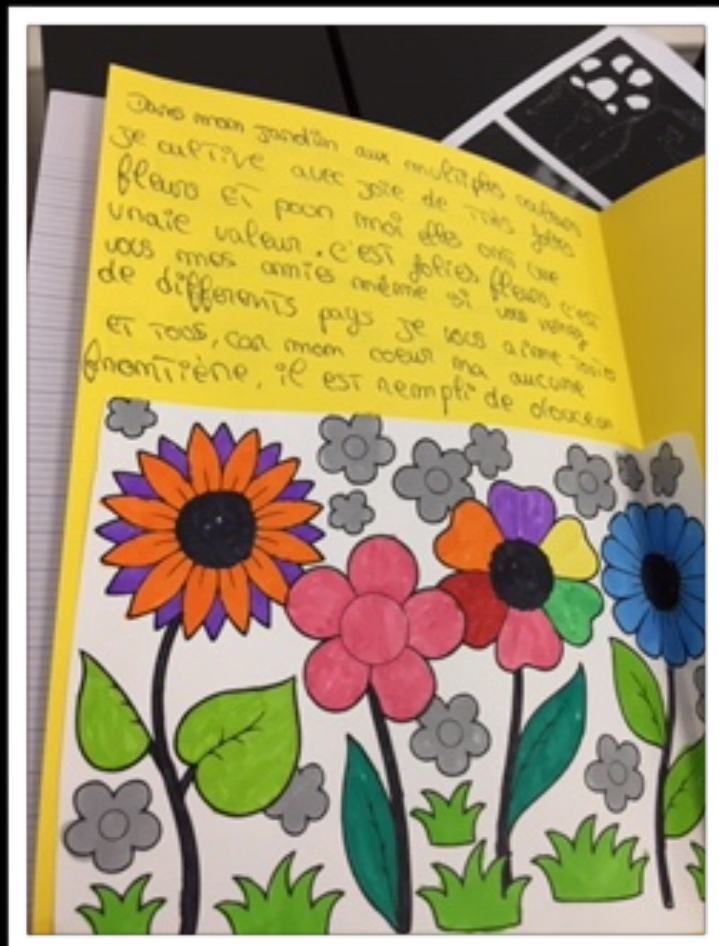 Dans mon jardin aux multiples couleurs
Je cultive avec joie de très jolies
fleurs et pour moi elles ont une
vraie valeur. c'est jolies fleurs c'est
vous mes amies même si vous venez
de différents pays je vous aime
et tous, car mon coeur n'a aucune
frontière, il est rempli de douceur